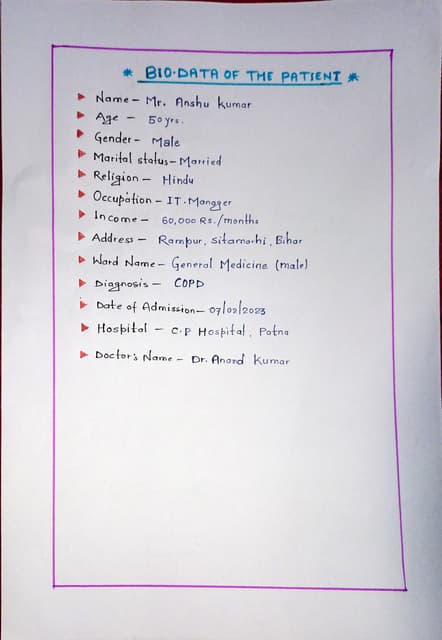 * BIO-DATA OF THE PATIENT *
▶ Name - Mr. Anshu Kumar
▶ Age - 50 yrs.
▶ Gender - Male
▶ Marital status - Married
▶ Religion - Hindu
▶ Occupation - IT. Manager
▶ Income - 60,000 Rs./months
▶ Address - Rampur, Sitamarhi, Bihar
▶ Ward Name - General Medicine (male)
▶ Diagnosis - COPD
▶ Date of Admission - 07/02/2023
▶ Hospital - C.P Hospital, Patna
▶ Doctor's Name - Dr. Anand Kumar